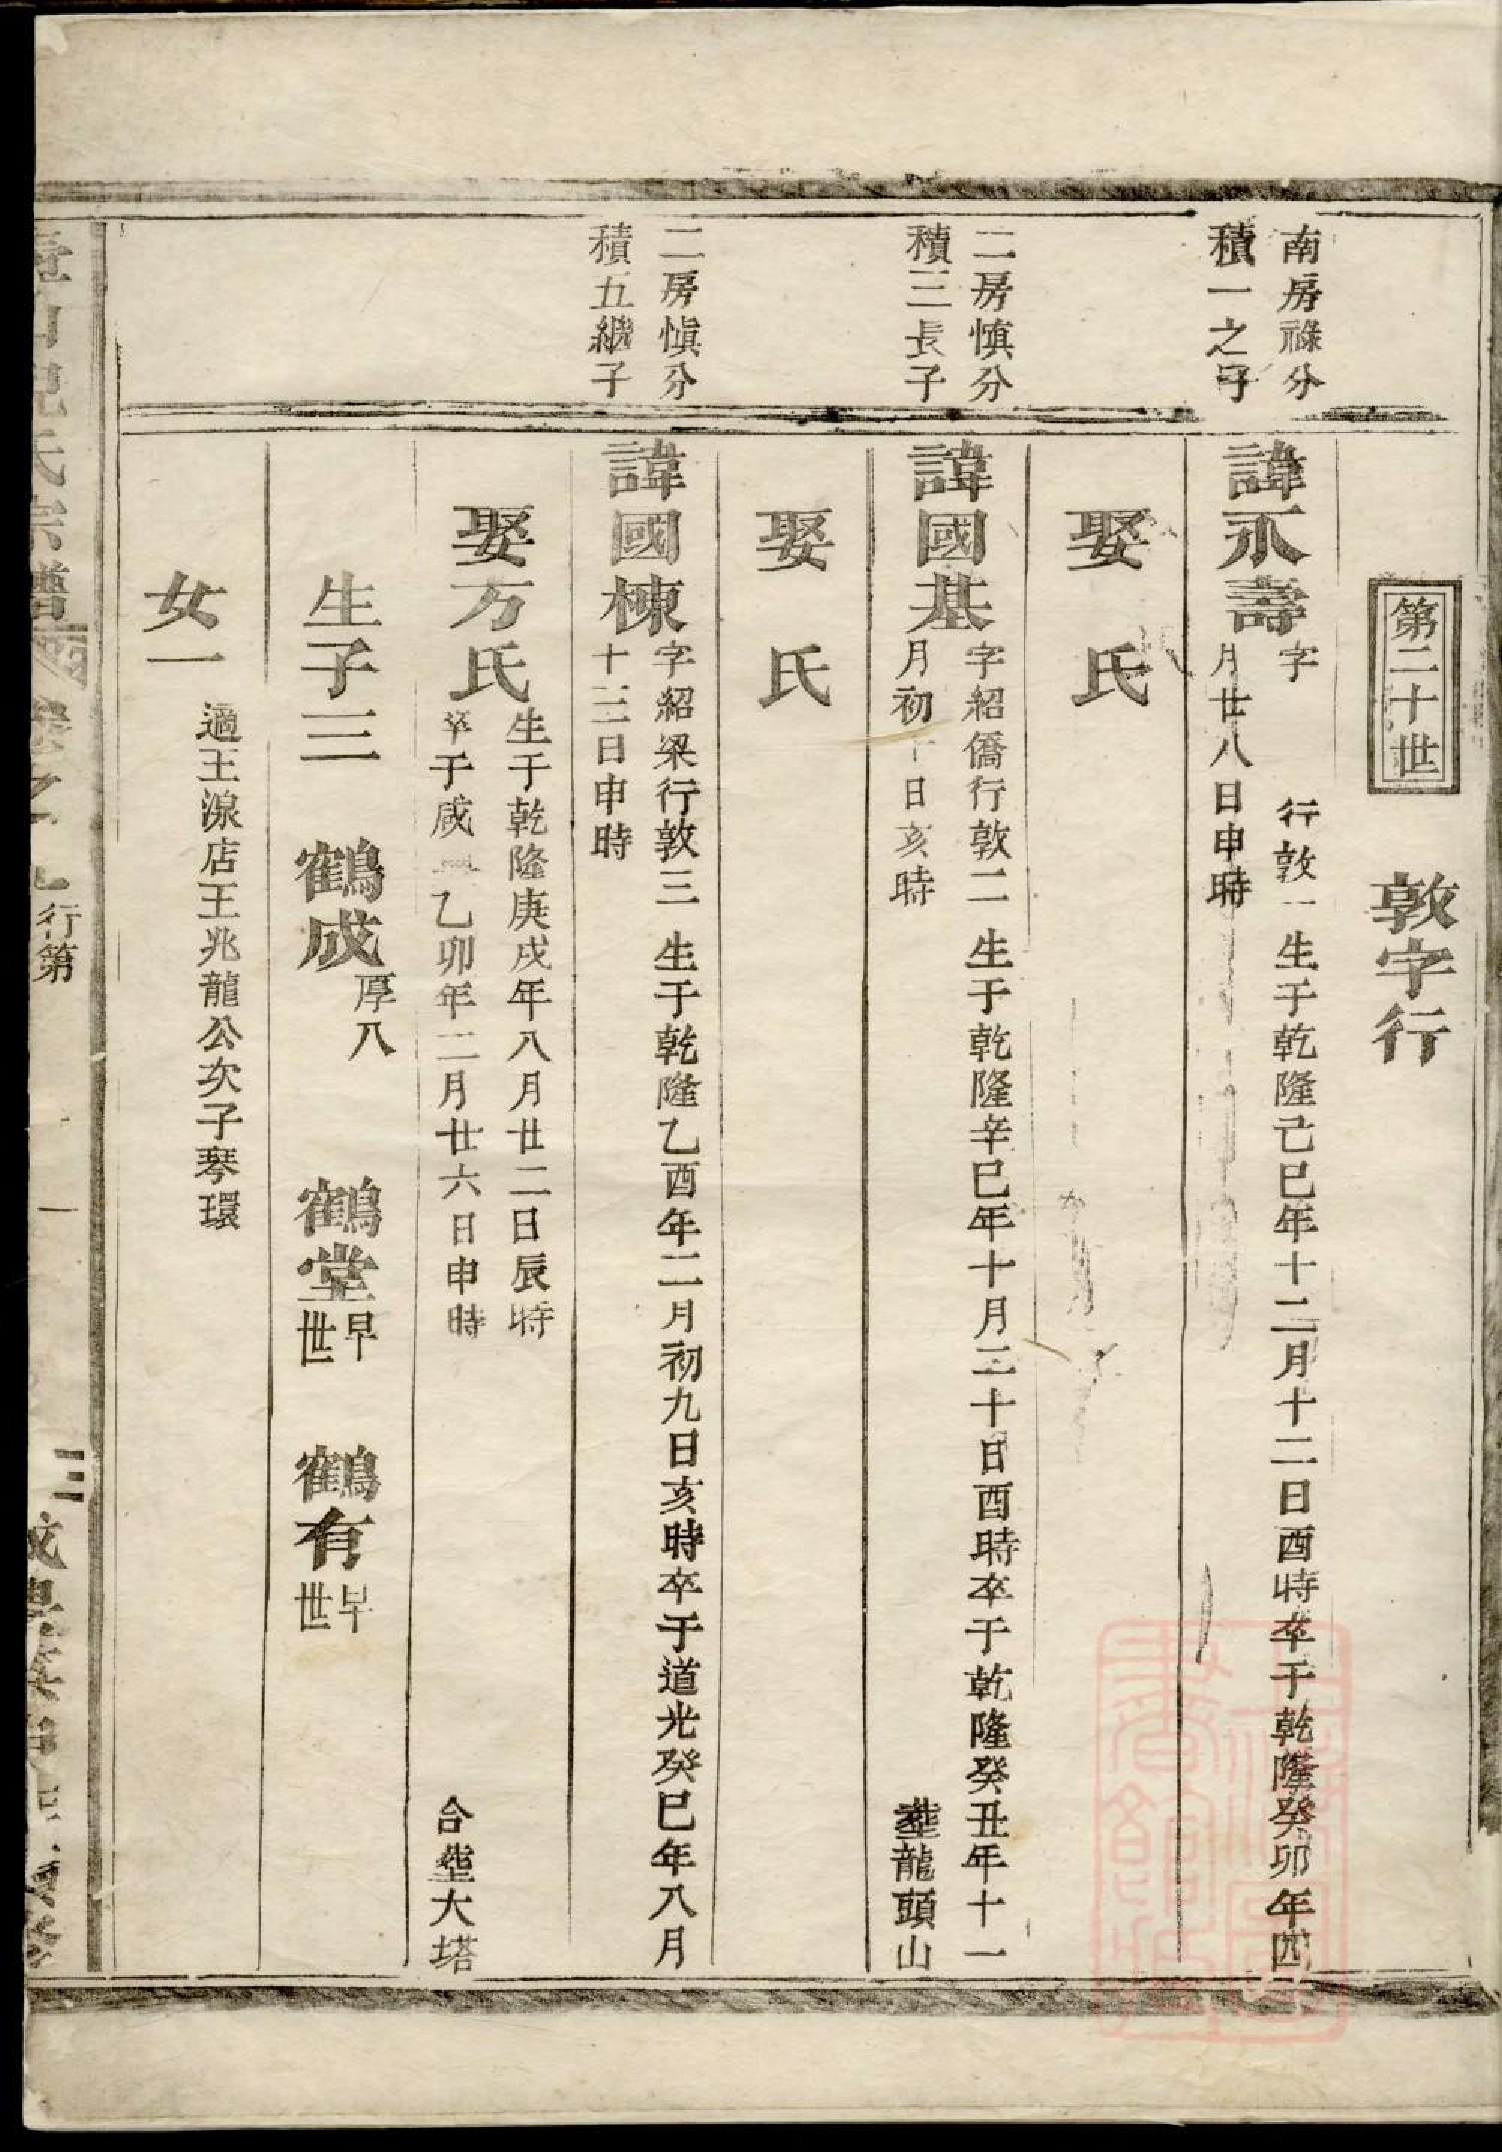 第二十世
敦字行
南房祿分
積一之子
諱永壽
字 行敦一生于乾隆己巳年十二月十二日酉時卒于乾隆癸卯年四
月廿八日申時
娶 氏
二房慎分
積三長子
諱國基
字紹僑行敦二 生于乾隆辛巳年十月三十日酉時卒于乾隆癸丑年十一
月初十日亥時 塟龍頭山
娶 氏
二房慎分
積五繼子
諱國棟
字紹梁行敦三 生于乾隆乙酉年二月初九日亥時卒于道光癸巳年八月
十三日申時
娶万氏
生于乾隆庚戌年八月廿二日辰時
卒于咸豐乙卯年二月廿六日申時 合塟大塔
生子三 鶴成 厚八 鶴堂 早世 鶴有 早世
女一
適王湶店王兆龍公次子琴環
氏宗譜 卷之九 行第 一